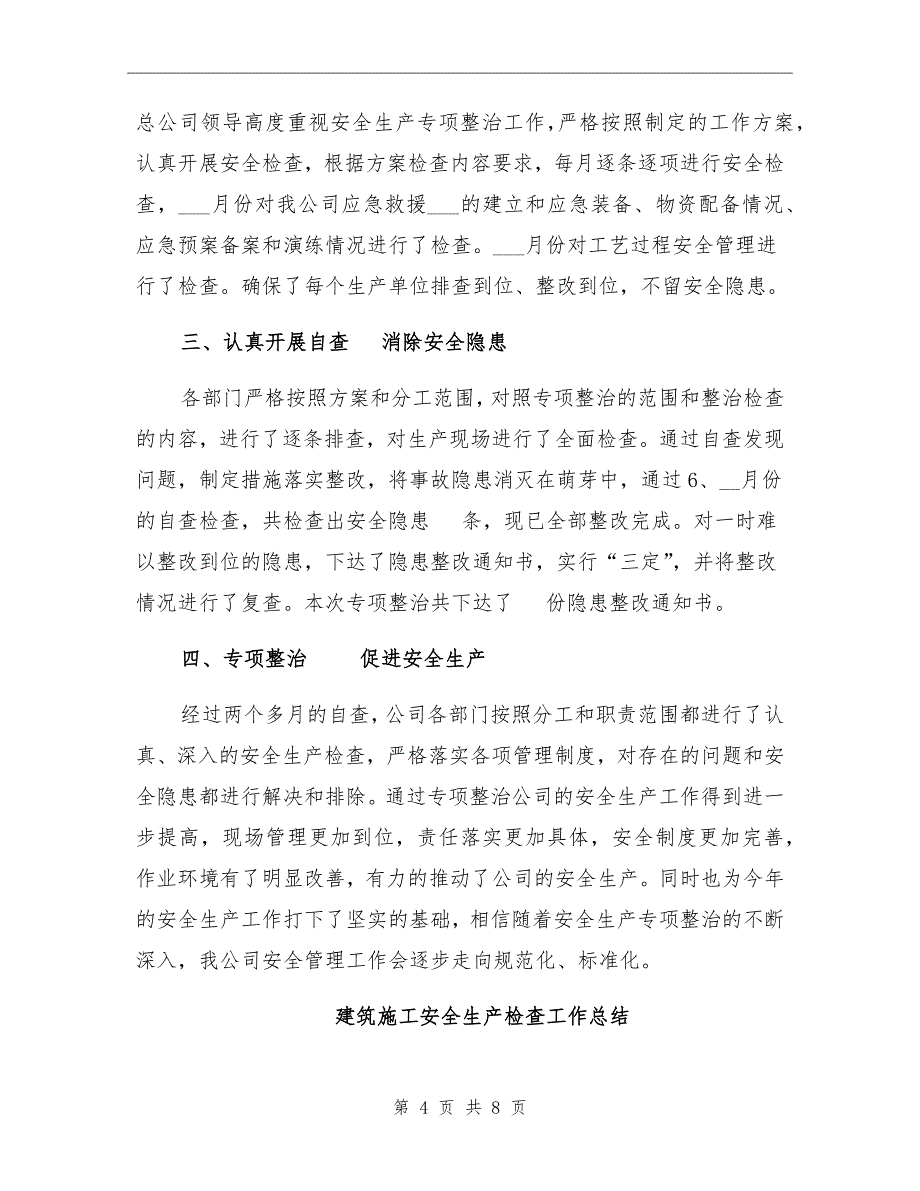 总公司领导高度重视安全生产专项整治工作，严格按照制定的工作方案，
认真开展安全检查，根据方案检查内容要求，每月逐条逐项进行安全检
查，___月份对我公司应急救援___的建立和应急装备、物资配备情况、
应急预案备案和演练情况进行了检查。___月份对工艺过程安全管理进
行了检查。确保了每个生产单位排查到位、整改到位，不留安全隐患。
三、认真开展自查 消除安全隐患
各部门严格按照方案和分工范围，对照专项整治的范围和整治检查
的内容，进行了逐条排查，对生产现场进行了全面检查。通过自查发现
问题，制定措施落实整改，将事故隐患消灭在萌芽中，通过 6、__月份
的自查检查，共检查出安全隐患 条，现已全部整改完成。对一时难
以整改到位的隐患，下达了隐患整改通知书，实行“三定”，并将整改
情况进行了复查。本次专项整治共下达了 份隐患整改通知书。
四、专项整治 促进安全生产
经过两个多月的自查，公司各部门按照分工和职责范围都进行了认
真、深入的安全生产检查，严格落实各项管理制度，对存在的问题和安
全隐患都进行解决和排除。通过专项整治公司的安全生产工作得到进一
步提高，现场管理更加到位，责任落实更加具体，安全制度更加完善，
作业环境有了明显改善，有力的推动了公司的安全生产。同时也为今年
的安全生产工作打下了坚实的基础，相信随着安全生产专项整治的不断
深入，我公司安全管理工作会逐步走向规范化、标准化。
建筑施工安全生产检查工作总结
第 4 页 共 8 页